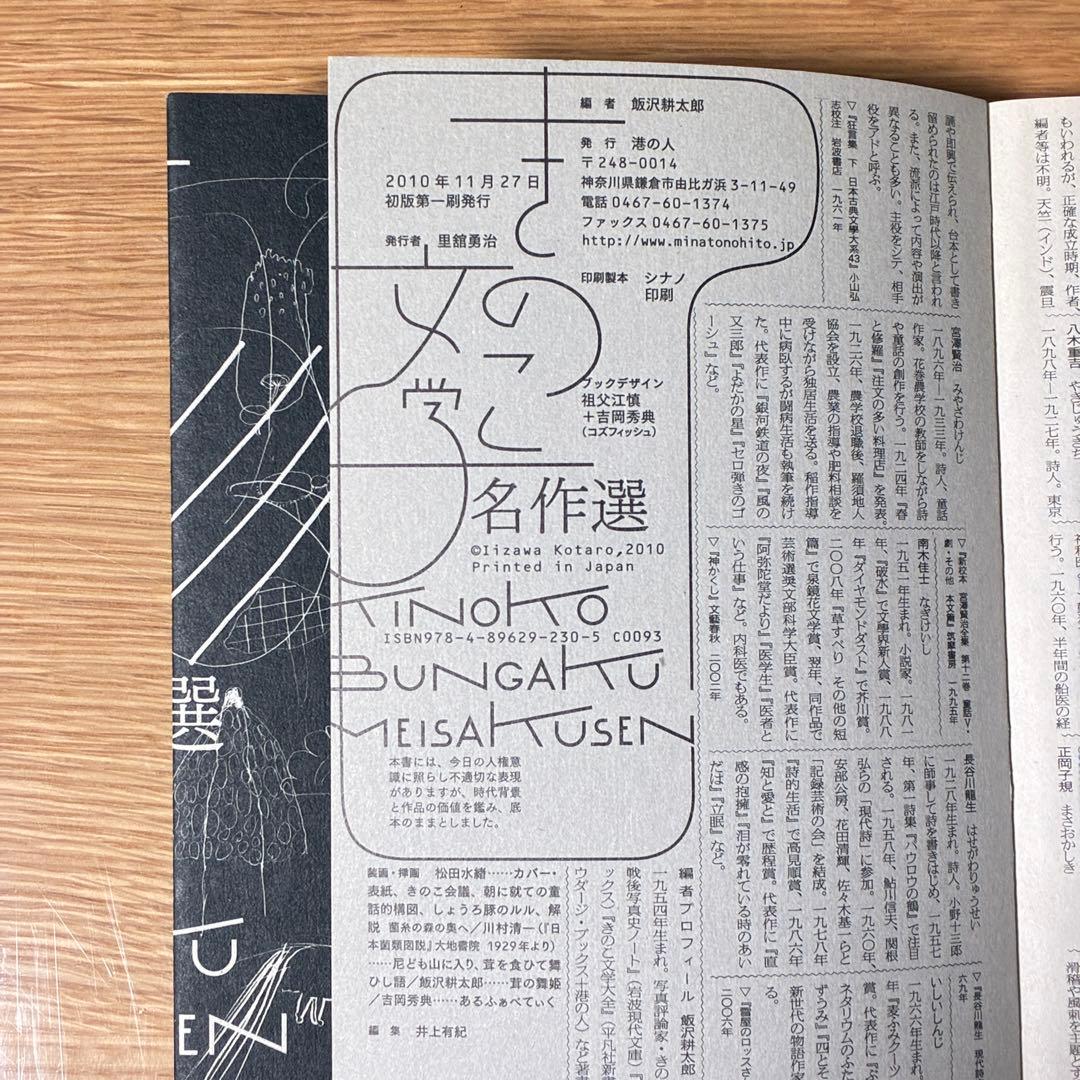 編者 飯沢耕太郎
発行 港の人
〒248-0014
神奈川県鎌倉市由比ガ浜3-11-49
電話0467-60-1374
ファックス0467-60-1375
http://www.minatonohito.jp
2010年11月27日
初版第一刷発行
発行者 里舘勇治
印刷製本 シナノ
印刷
きのこ
文学
名作選
ブックデザイン
祖父江慎
+吉岡秀典
(コズフィッシュ)
©Iizawa Kotaro,2010
Printed in Japan
KINOKO
ISBN978-4-89629-230-5 C0093
BUNGAKU
MEISAKUSEN
本書には、今日の人権意
識に照らし不適切な表現
がありますが、時代背景
と作品の価値を鑑み、底
本のままとしました。
装画・挿画 松田水緒……カバー・
表紙、きのこ会議、朝に就ての童
話的構図、しょうろ豚のルル、解
説 菌糸の森の奥へ/川村清一(『日
本菌類図説』大地書院 1929年より)
……尼ども山に入り、茸を食ひて舞
ひし語/飯沢耕太郎……茸の舞姫
/吉岡秀典……あるふぁべてぃく
編集 井上有紀
誦や即興で伝えられ、台本として書き
留められたのは江戸時代以降と言われ
る。また、流派によって内容や演出が
異なることも多い。主役をシテ、相手
役をアドと呼ぶ。
▽『狂言集 下 日本古典文學大系43』小山弘
志校注 岩波書店 一九六一年
宮澤賢治 みやざわけんじ
一八九六年―一九三三年。詩人、童話
作家。花巻農学校の教師をしながら詩
や童話の創作を行う。一九二四年『春
と修羅』『注文の多い料理店』を発表。
一九二六年、農学校退職後、羅須地人
協会を設立、農業の指導や肥料相談を
受けながら独居生活を送る。稲作指導
中に病臥するが闘病生活も執筆を続け
た。代表作に『銀河鉄道の夜』『風の
又三郎』『よだかの星』『セロ弾きのゴ
ーシュ』など。
▽『新校本 宮澤賢治全集 第十二巻 童話Ⅴ・
劇・その他 本文篇』筑摩書房 一九九五年
南木佳士 なぎけいし
一九五一年生まれ。小説家。一九八一
年、「破水」で文學界新人賞、一九八八
年『ダイヤモンドダスト』で芥川賞。
二〇〇八年『草すべり その他の短
篇』で泉鏡花文学賞、翌年、同作品で
芸術選奨文部科学大臣賞。代表作に
『阿弥陀堂だより』『医学生』『医者と
いう仕事』など。内科医でもある。
▽『神かくし』文藝春秋 二〇〇二年
長谷川龍生 はせがわりゅうせい
一九二八年生まれ。詩人。小野十三郎
に師事して詩を書きはじめ、一九五七
年、第一詩集『パウロウの鶴』で注目
される。一九五八年、鮎川信夫、関根
弘らの「現代詩」に参加。一九六〇年、
安部公房、花田清輝、佐々木基一らと
「記録芸術の会」を結成。一九七八年
『詩的生活』で高見順賞、一九八六年
『知と愛と』で歴程賞。代表作に『直
感の抱擁』『泪が零れている時のあい
だは』『立眠』など。
▽『長谷川龍生 現代詩
六九年
いしいしんじ
一九六六年生まれ。
『麦ふみクーツ
賞。代表作に『ぶ
ネタリウムのふた
ずうみ』『四とそ
新世代の物語作家
る。
▽『雪屋のロッスさ
二〇〇六年
編者プロフィール 飯沢耕太郎
一九五四年生まれ。写真評論家・きの
戦後写真史ノート』(岩波現代文庫)『
ックス)『きのこ文学大全』(平凡社新書
ウダージ・ブックス+港の人)など著書
もいわれるが、正確な成立時期、作者、
編者等は不明。天竺(インド)、震旦
八木重吉 やぎじゅうきち
一八九八年―一九二七年。詩人。東京
行う。一九六〇年、半年間の船医の経
正岡子規 まさおかしき
滑稽や風刺を主題とす
選
KU
EN